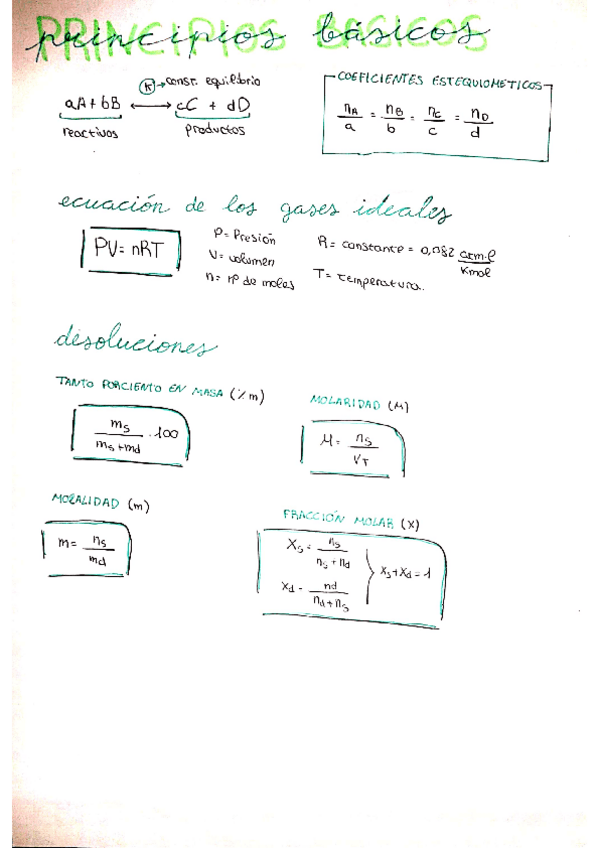 PRINCIPIOS BÁSICOS
principios básicos
K → const. equilibrio
aA + bB ⟷ cC + dD
reactivos productos
COEFICIENTES ESTEQUIOMETICOS
nA/a = nB/b = nC/c = nD/d
ecuación de los gases ideales
PV = nRT
P = Presión
V = volumen
n = nº de moles
R = constante = 0,082 atm·l/Kmol
T = temperatura.
desoluciones
TANTO PORCIENTO EN MASA (%m)
ms/ms+md · 100
MOLARIDAD (M)
M = ns/VT
MOLALIDAD (m)
m = ns/md
FRACCIÓN MOLAR (X)
Xs = ns/ns + nd
Xd = nd/nd + ns
Xs + Xd = 1